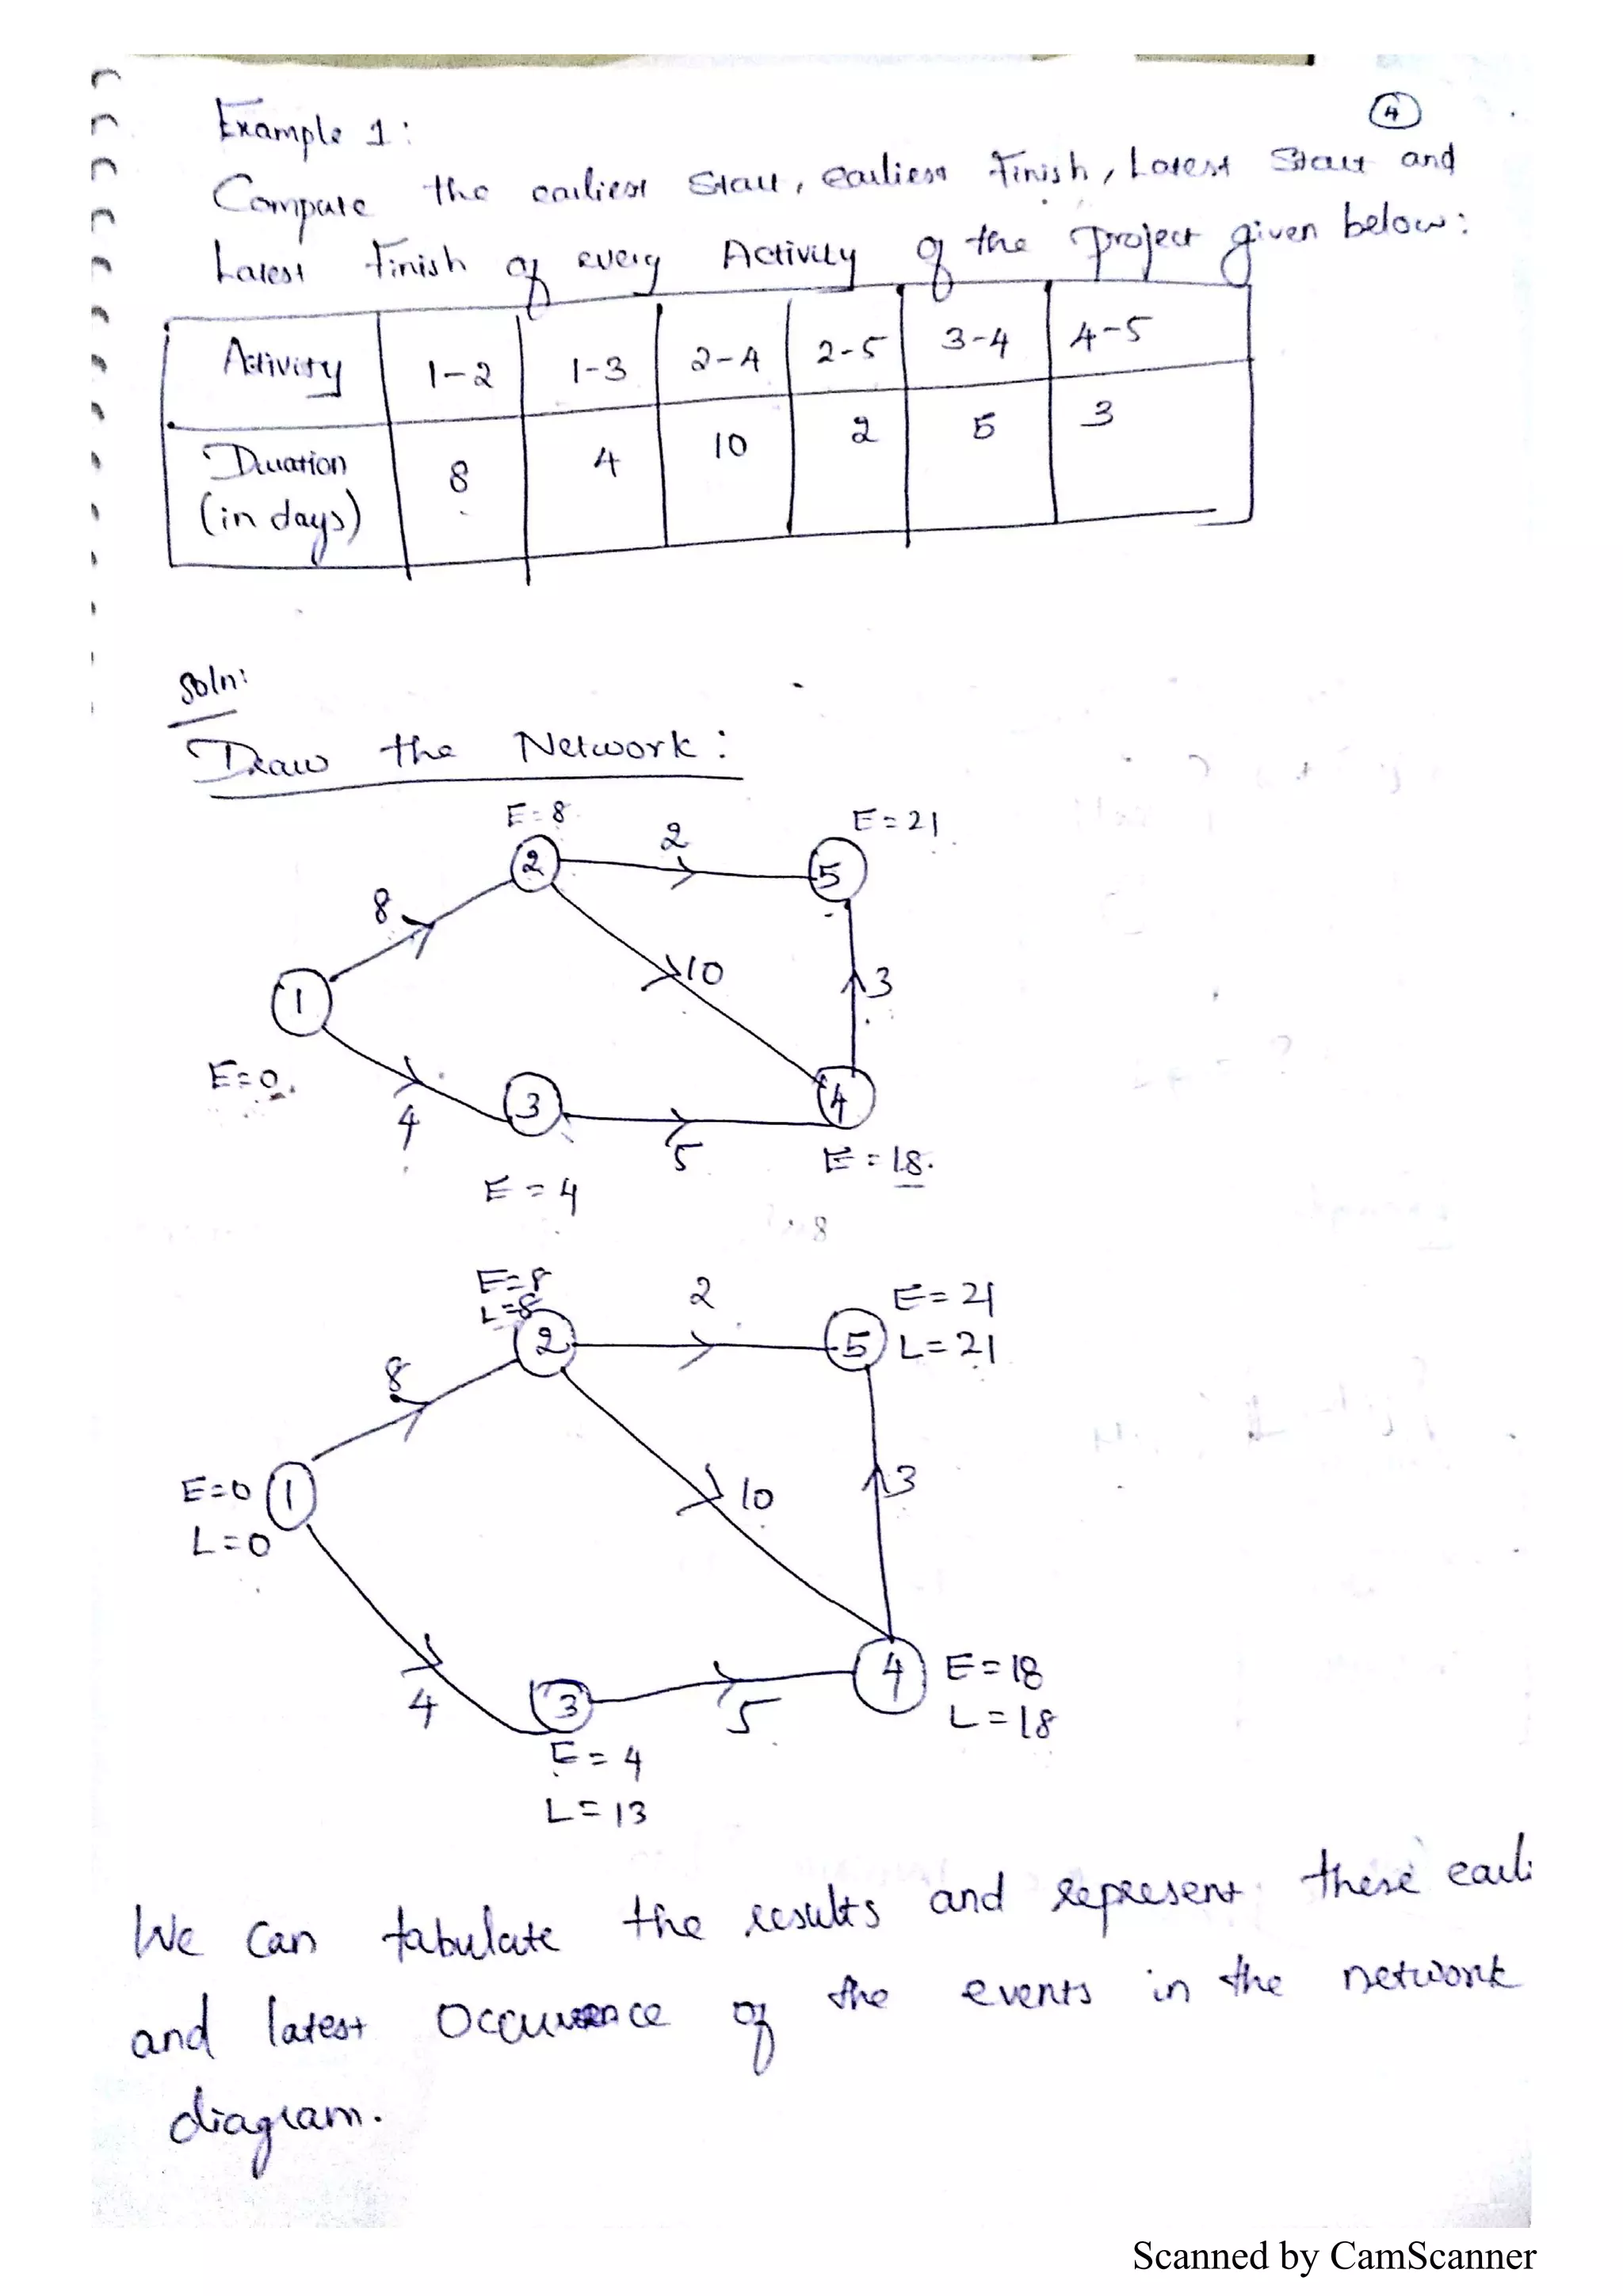 4
Example 1:
Compute the earliest start, earliest Finish, Latest Start and
Latest Finish of every Activity of the project given below:
Activity 1-2 1-3 2-4 2-5 3-4 4-5
Duration (in days) 8 4 10 2 5 3
Soln:
Draw the Network:
E=8
2
E=21
2
5
8
10
3
1
E=0.
3
4
4
5
E=18.
E=4
E=8
L=8
2
E=21
2
5
L=21
8
E=0
1
10
3
L=0
4
E=18
4
3
5
L=18
E=4
L=13
We can tabulate the results and represent these earli
and latest Occurrence of the events in the network
diagram.
Scanned by CamScanner